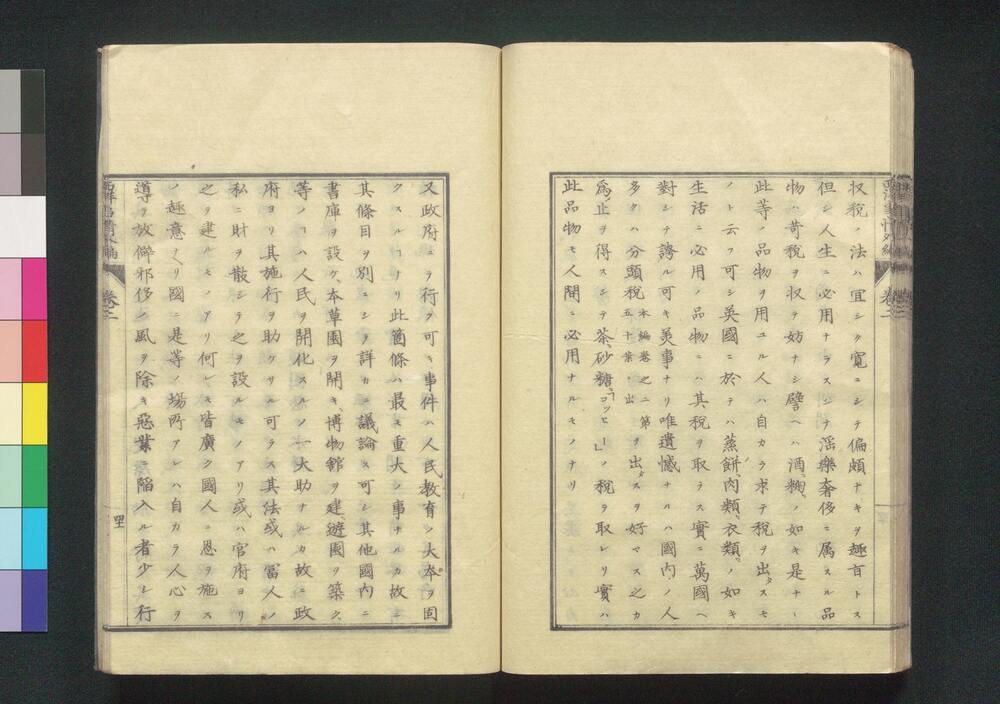 収税ノ法ハ宜シク寛ニシテ偏頗ナキヲ趣旨トス
但シ人生ニ必用ナラスシテ淫樂奢侈ニ属スル品
物ハ苛税ヲ収テ妨ナシ譬ヘハ酒、麹、ノ如キ是ナリ
此等ノ品物ヲ用ユル人ハ自カラ求テ税ヲ出タスモ
ノト云フ可シ英國ニ於テハ蒸餅、肉類、衣類、ノ如キ
生活ニ必用ノ品物ニハ其税ヲ取ラス實ニ萬國ヘ
對シテ誇ル可キ美事ナリ唯遺憾ナルハ國内ノ人
多クハ分頭税本編巻之二第五十葉ニ出ヲ出タスヲ好マス之カ
為メ止ヲ得スシテ茶、砂糖、「コッヒー」ノ税ヲ取レリ實ハ
此品物モ人間ニ必用ナルモノナリ
又政府ニテ行ク可キ事件ハ人民教育ノ大本ヲ固
クスルヿナリ此箇條ハ最モ重大ノ事ナルカ故ニ
其條目ヲ別ニシテ詳カニ議論ス可シ其他國内ニ
書庫ヲ設ケ、本草園ヲ開キ、博物館ヲ建、遊園ヲ築ク、
等ノヿハ人民ヲ開化スルノ一大助ナルカ故ニ政
府ヨリ其施行ヲ助ケサル可ラス其法或ハ富人ノ
私ニ財ヲ散シテ之ヲ設ルモノアリ或ハ官府ヨリ
之ヲ建ルモノアリ何レモ皆廣ク國人ニ恩ヲ施ス
ノ趣意ナリ國ニ是等ノ場所アレハ自カラ人心ヲ
導テ放僻邪侈ノ風ヲ除キ惡業ニ陥入ル者少シ行
巻之二
四十